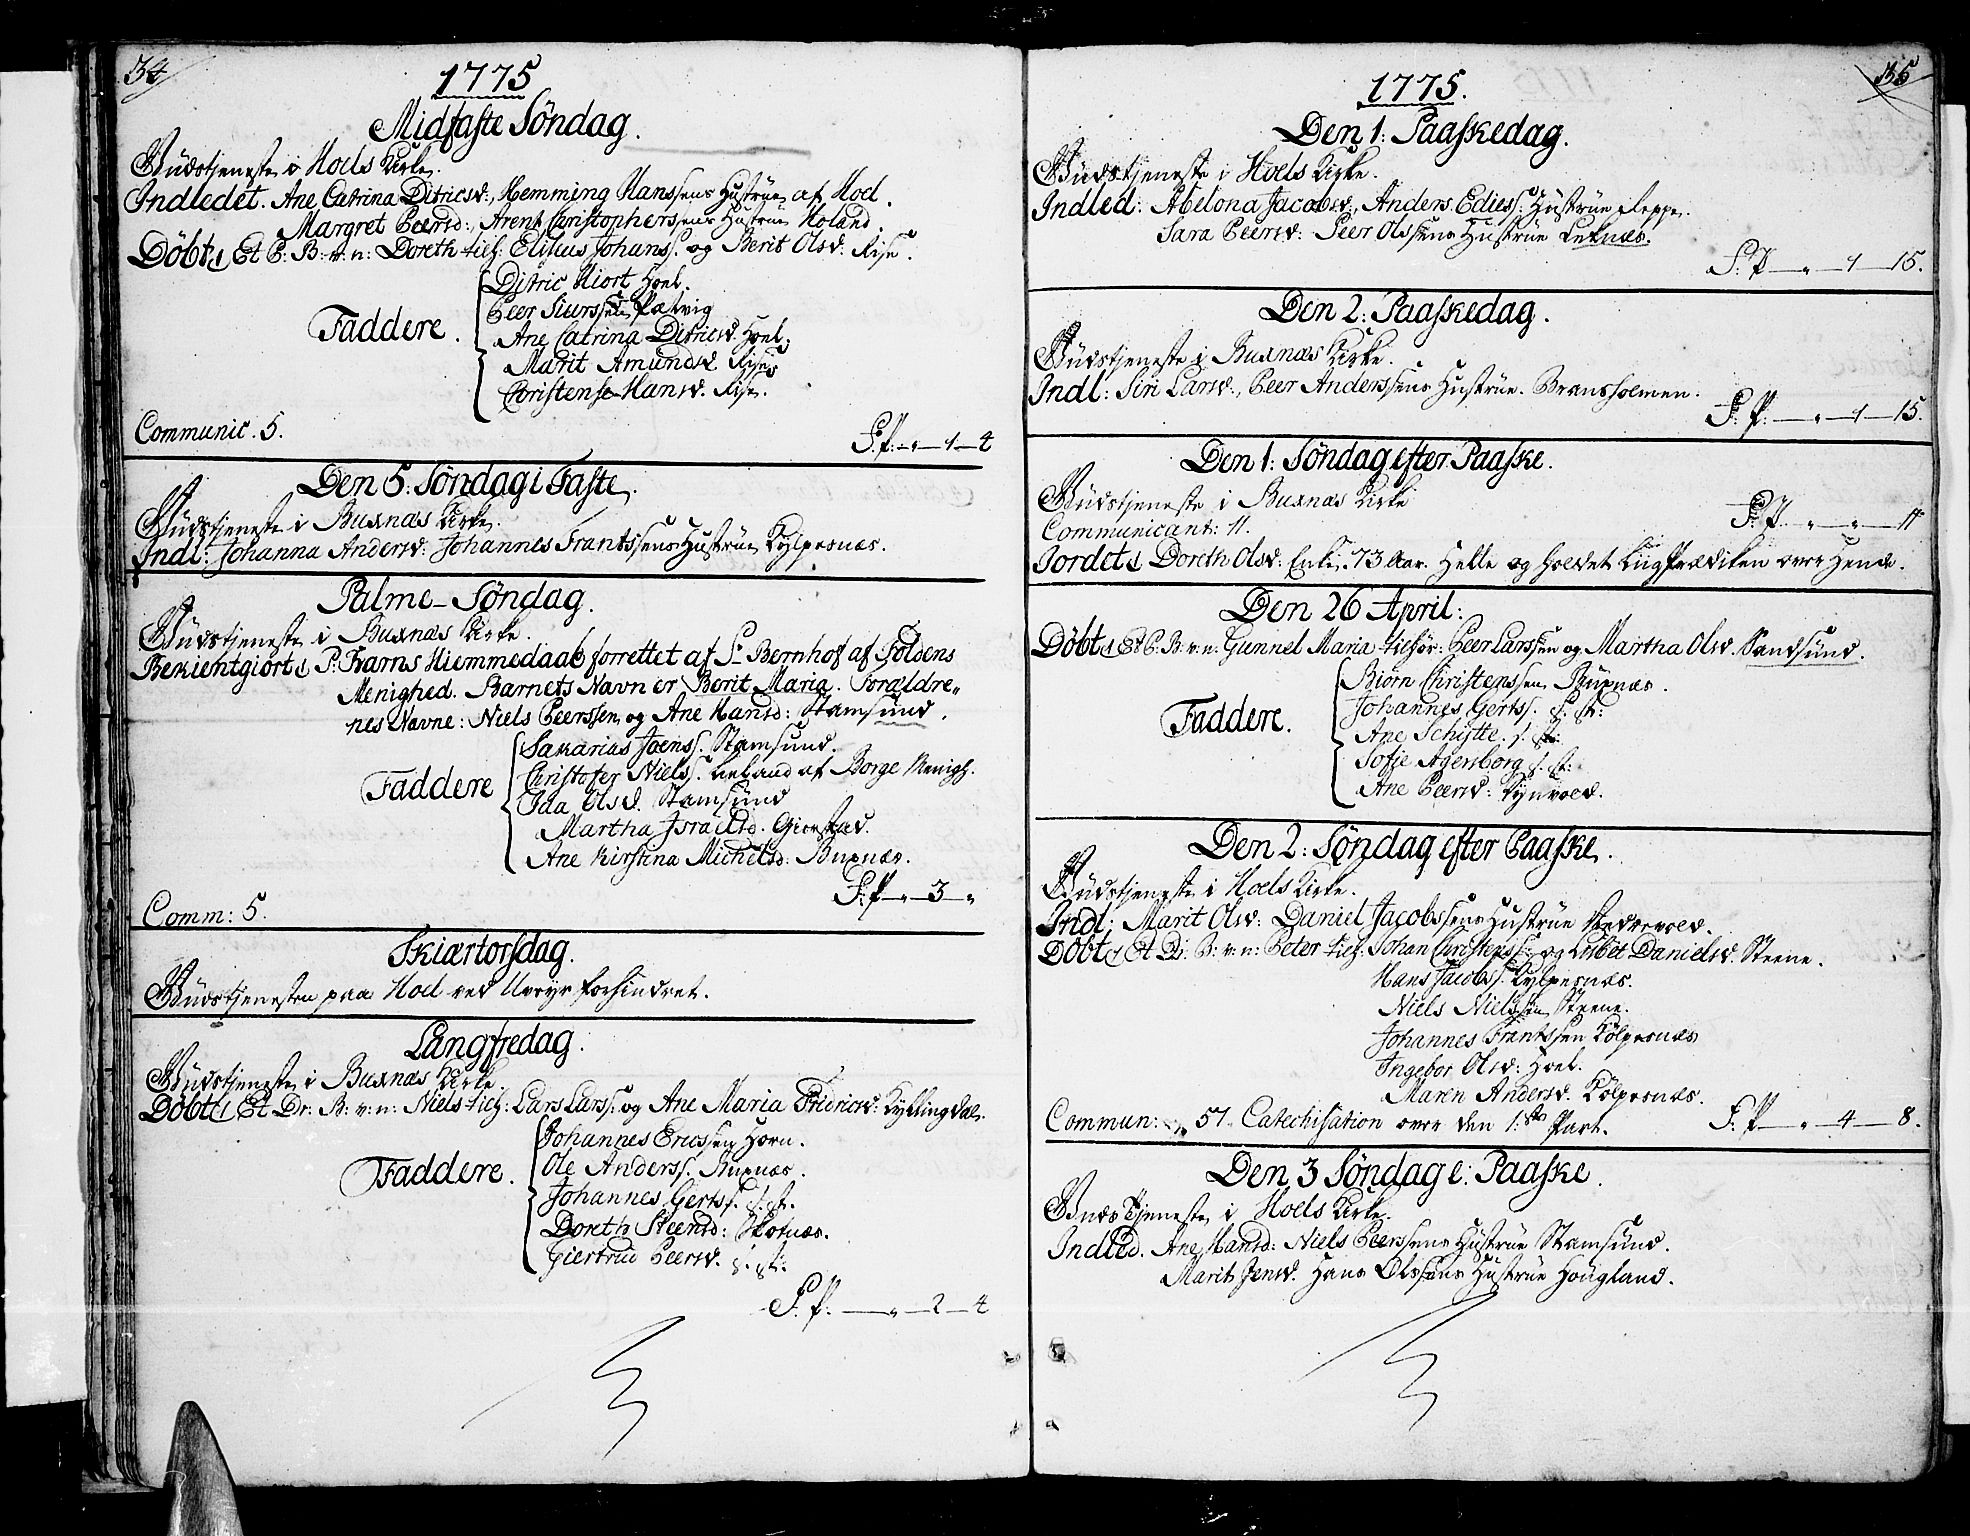 34
1775
Midfaste Søndag.
Gudstjeneste i Hoels Kirke.
Indledet. Ane Catrina Ditricsd:, Hemming Hanssens Hustrue af Hoel.
Margret Peersd:, Arent Christophersens Hustrue Holand.
Døbt 1 Et P: B: v: n: Doreth tilh: Elisæus Johanss: og Berit Olsd: Rise.
Faddere.
Ditric Hiort Hoel.
Peer Siurssen Patvig
Ane Catrina Ditricsd. Hoel.
Marit Amundsd Rise
Christense Hansd. Rise.
Communic. 5.
F: P: „ 1 4
Den 5: Søndag i Faste.
Gudstjeneste i Buxnæs Kirke.
Indl: Johanna Andersd: Johannes Frantssens Hustrue Kylpesnæs.
Palme-Søndag.
Gudstjeneste i Buxnæs Kirke.
Bekientgiort 1 P: Barns Hiemmedaab forrettet af Sr Bernhof af Foldens
Menighed. Barnets Navn er Berit Maria. Forældre„
nes Navne: Niels Peerssen og Ane Hansd: Stamsund.
Faddere
Sakarias Jaenss. Stamsund.
Christofer Nielss. Leland af Borge Menigh.
Ida Olsd. Stamsund
Martha Israelsd. Gierstad.
Ane Kirstina Michelsd: Buxnæs.
F: P „ 3 „
Comm: 5.
Skiærtorsdag.
Gudstjenesten paa Hoel ved Uveyr forhindret.
Langfredag.
Gudstjeneste i Buxnæs Kirke.
Døbt 1 Et Dr: B: v: n: Niels tilh: Lars Larss: og Ane Maria Fridricsd: Kyllingdal.
Faddere.
Johannes Ericssen Horn.
Ole Anderss. Buxnæs.
Johannes Gertss. s. st.
Doreth Steensd: Skotnæs.
Giertrud Peersd. s. st:
F: P: „ 2 4
35
1775.
Den 1: Paaskedag.
Gudstjeneste i Hoels Kirke.
Indled: Abelona Jacobsd:, Anders Ediess: Hustrue Leppe.
Sara Peersd: Peer Olssens Hustrue Leknæs.
F: P „ 1 15.
Den 2: Paaskedag.
Gudstjeneste i Buxnæs Kirke.
Indl: Siri Larsd:, Peer Anderssens Hustrue. Bransholmen.
F: P: „ 1 15.
Den 1: Søndag efter Paaske.
Gudstjeneste i Buxnæs Kirke
F: P. „ „ 11
Communicant: 11.
Jordet 1 Doreth Olsd: Enke. 73 Aar. Helle og holdet Liigprædiken over hende.
Den 26 April:
Døbt 1 Et P: B: v: n: Gunnel Maria tilhør: Peer Larssen og Martha Olsd. Sandsund.
Faddere.
Biørn Christenssen Buxnæs.
Johannes Gertss. s. st:
Ane Schytte. s. st:
Sofie Agersborg s. st:
Ane Peersd: Vynvold.
Den 2: Søndag efter Paaske.
Gudstjeneste i Hoels Kirke.
Indl: Marit Olsd: Daniel Jacobssens Hustrue Vestrevold.
Døbt 1 Et Di: B: v: n: Peter tilh: Johan Christenss: og Lisbet Danielsd. Steene.
Hans Jacobss. Kylpesnæs.
Niels Nielssen Steene.
Johannes Frantssen Kølpesnæs
Ingebor Olsd: Hoel.
Maren Andersd. Kølpesnæs.
Commun: 57. Catechisation over den 1:ste Part.
F: P „ 4 8.
Den 3 Søndag e: Paaske.
Gudstjeneste i Hoels Kirke.
Indled. Ane Hansd: Niels Peerssens Hustrue Stamsund.
Marit Jensd. Hans Olssens Hustrue Hougland.